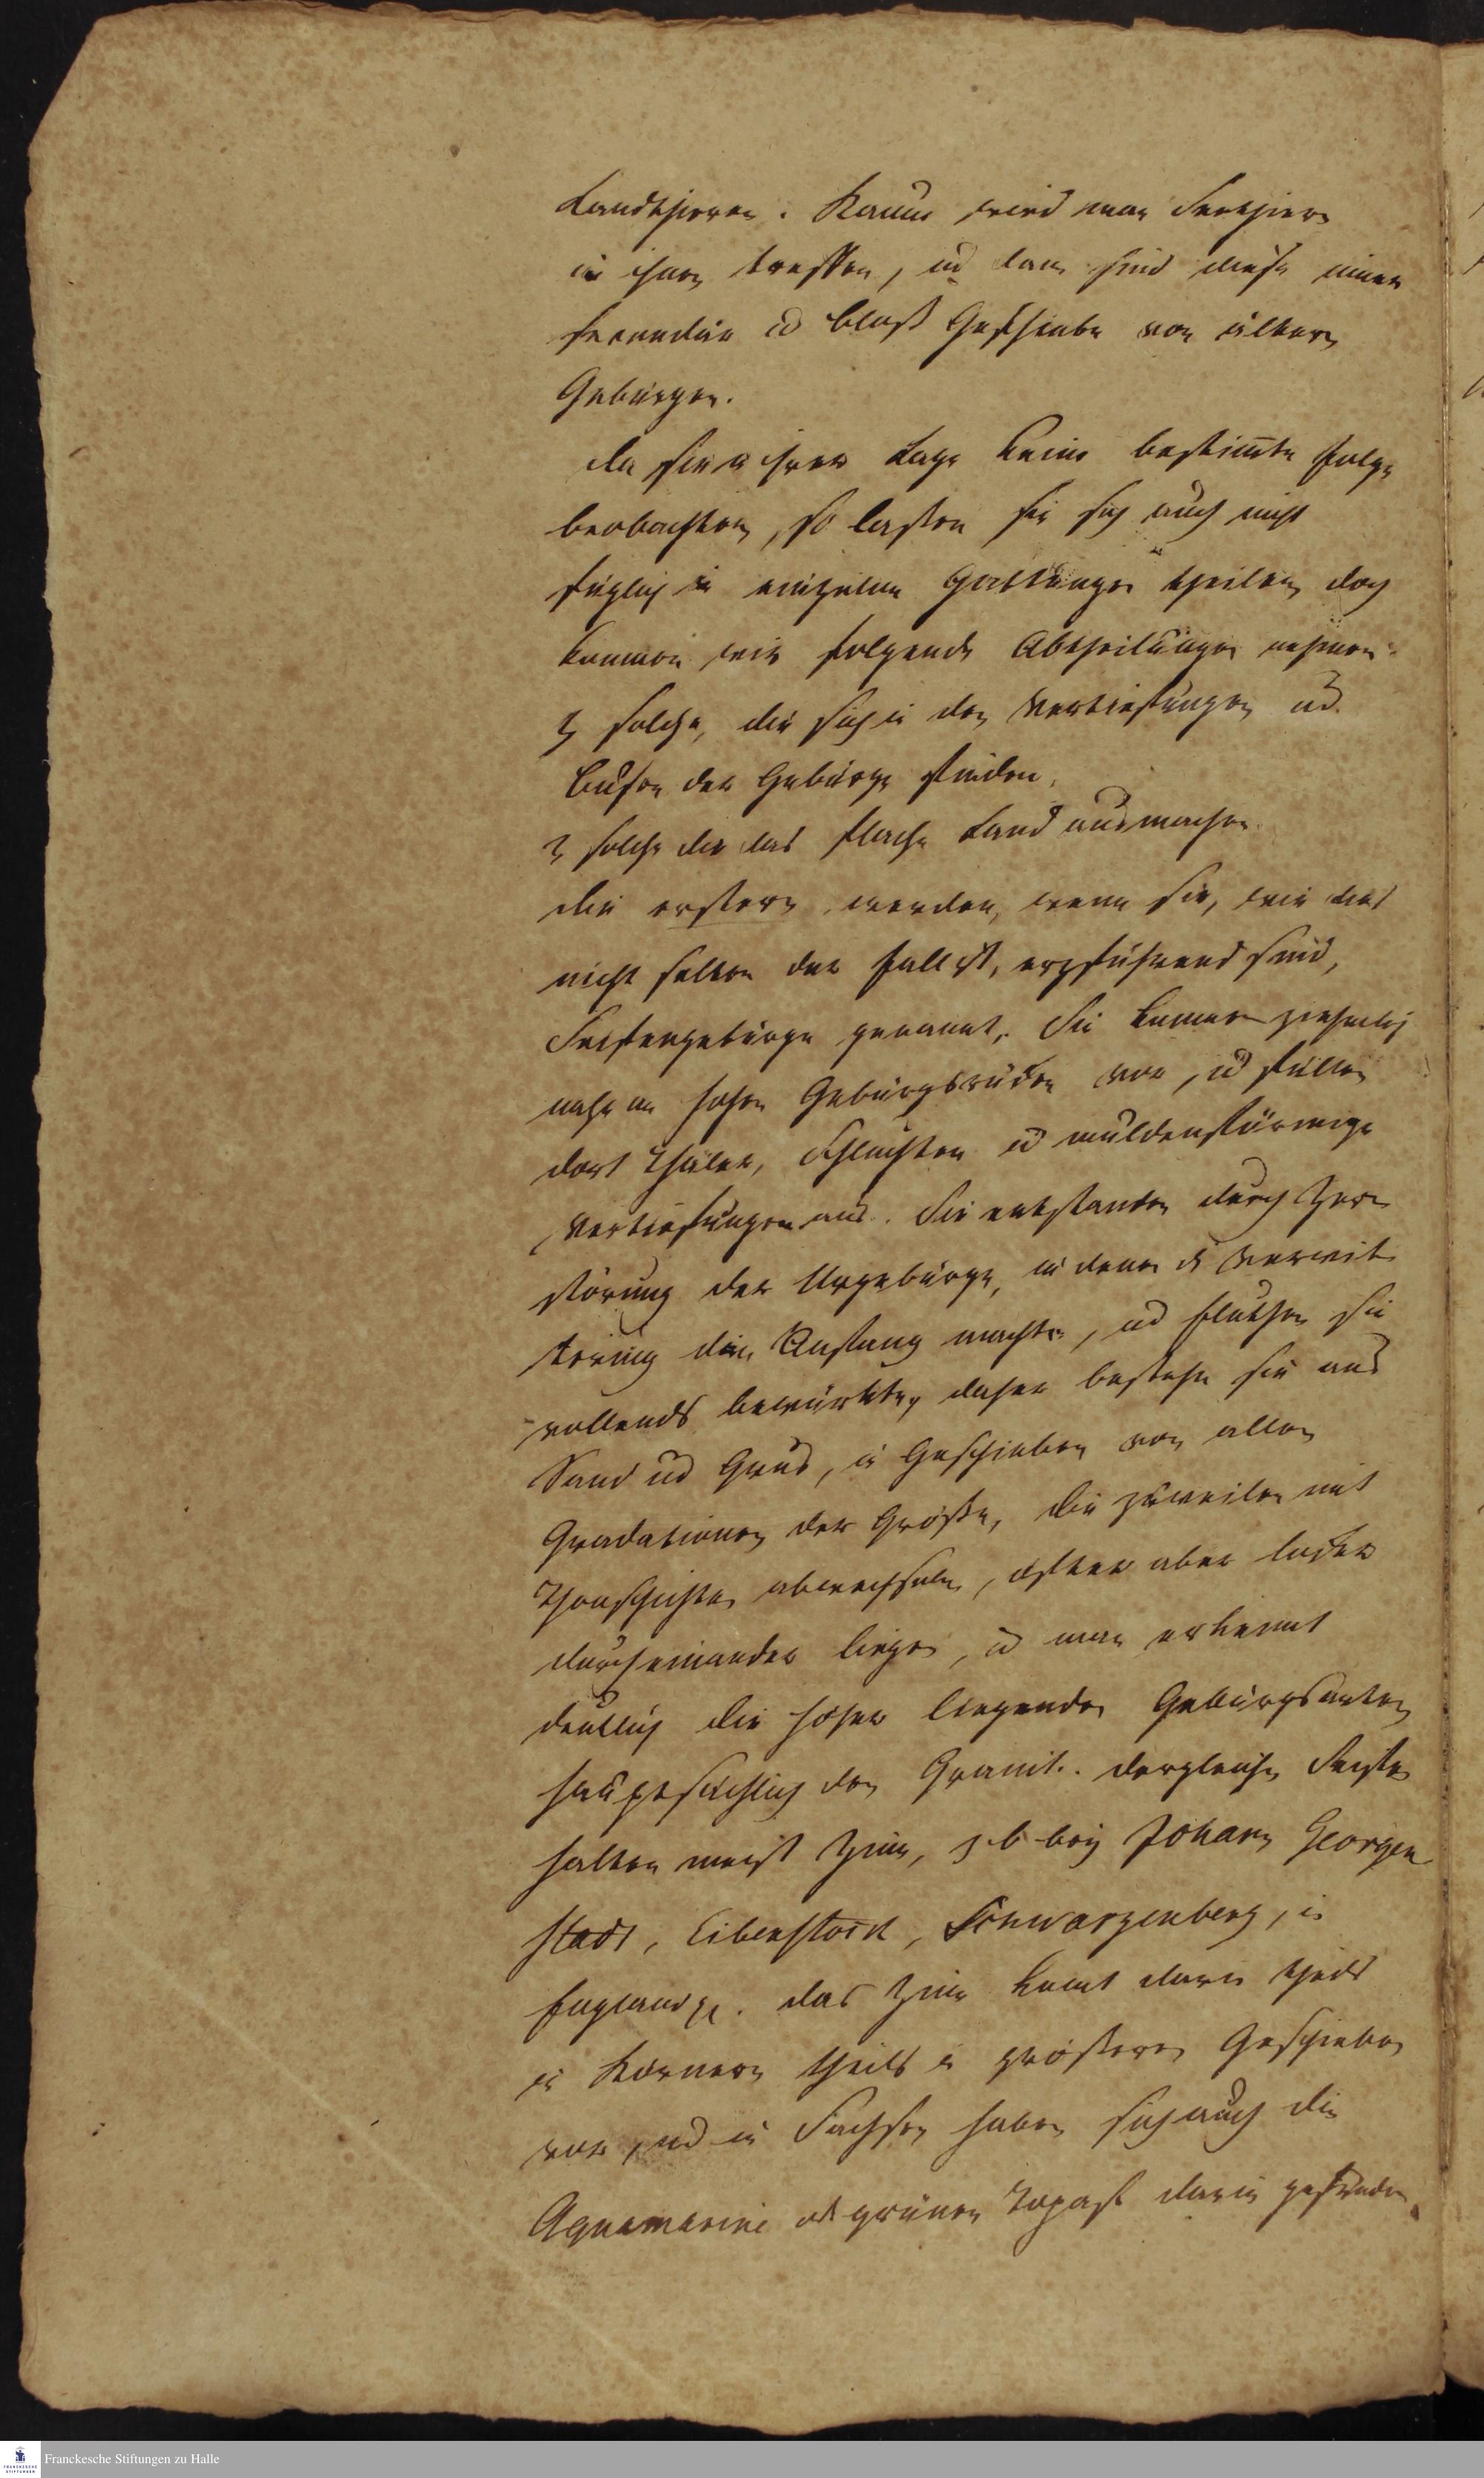 Landthieren. Kaum wird man Seethiere
in ihnen treffen, ud dann sind diese immer
secundär ud bloß Geschiebe von ältern
Gebürgen.
da sie in ihrer Lage keine bestimte Folge
beobachten, so lassen sie sich auch nicht
füglich in einzelne Gattungen theilen, doch
kommen wir folgende Abtheilungen nehmen:
1, solche, die sich in den Vertiefungen ud
Busen der Gebürge finden,
2, solche die das flache Land ausmachen.
die erstern werden, wenn sie, wie dies
nicht selten der Fall ist, erzführend sind,
Seifengebürge genannt. Sie kommen ziehmlich
nahe an hohen Gebürgsrücken vor, ud füllen
dort Thäler, Schluchten ud muldenförmige
Vertiefungen aus. Sie entstanden durch Zer
störung der Urgebürge, in denen die Verwit
terung den Anfang machte, ud Fluthen sie
vollends bewürkten, daher bestehn sie aus
Sand ud Grus, in Geschieben von allen
Gradationen der Größe, die zuweilen mit
Thonschichten abwechseln, öfter aber locker
durcheinander liegen, ud man erkennt
deutlich die höher liegenden Gebürgsarten
hauptsächlich den Granit. dergleichen Seifen
halten meist Zinn, z b bey Johann Georgen
stadt, Eibenstock, Schwarzenberg, in
England pp. das Zinn komt darin theils
in Körnern theils in größeren Geschieben
vor, ud in Sachsen haben sich auch die
Aquamarine od grünen Topase darin gefunden,
Franckesche Stiftungen zu Halle